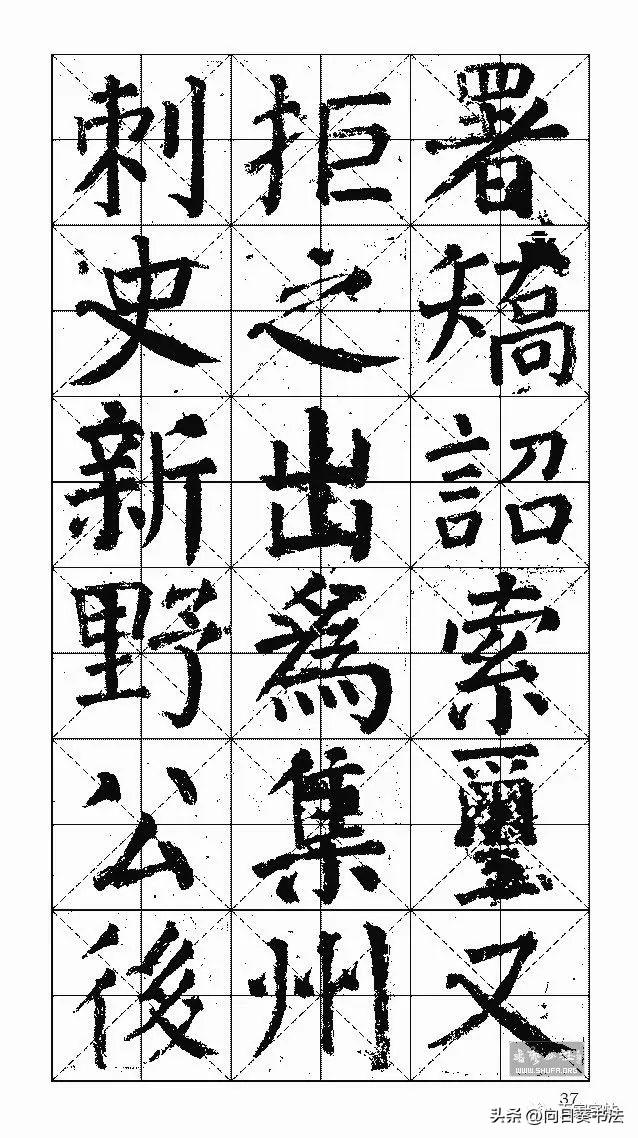 署矯詔索璽又
拒之出為集州
刺史新野公後
WWW.SHUFA.ORG
37
头条 @向日葵书法